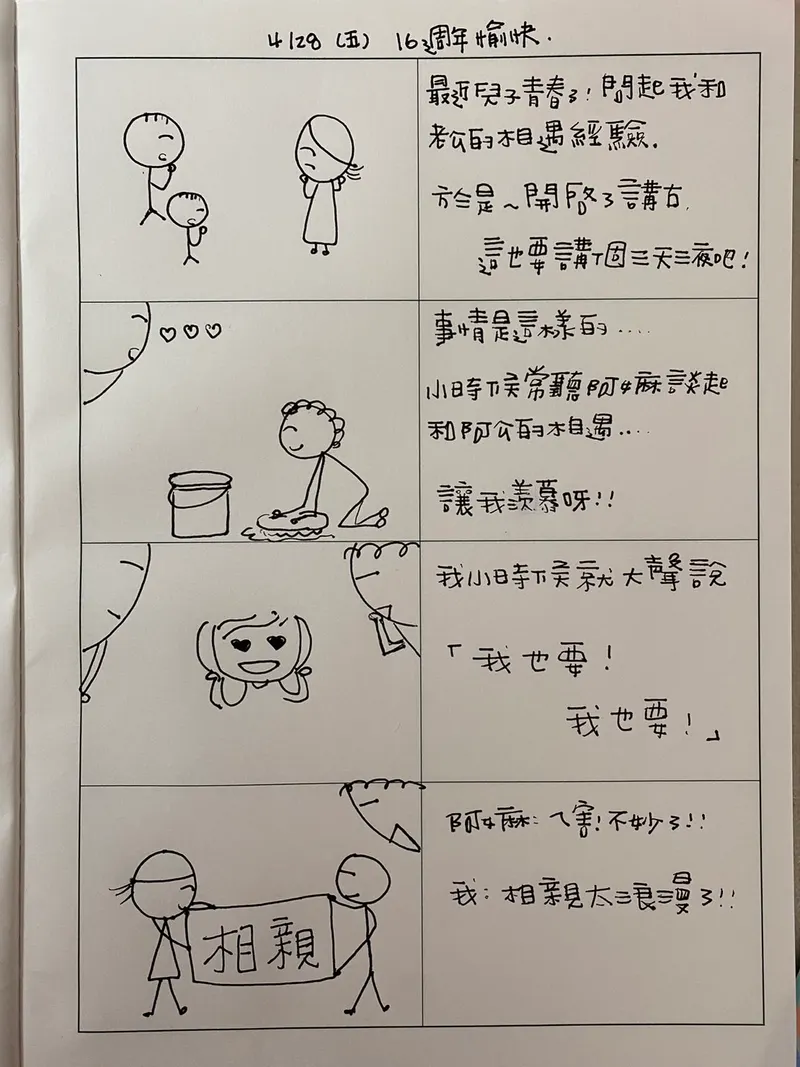 4/28（五） 16週年愉快.
最近兒子青春了！問起我和
老公的相遇經驗.
於是~開啓了講古.
這也要講個三天三夜吧！
事情是這樣的....
小時候常聽阿嬤談起
和阿公的相遇....
讓我羨慕呀！！
我小時候就大聲說
「我也要！
我也要！」
阿嬤：害！不妙了！！
我：相親太浪漫了！！
相親